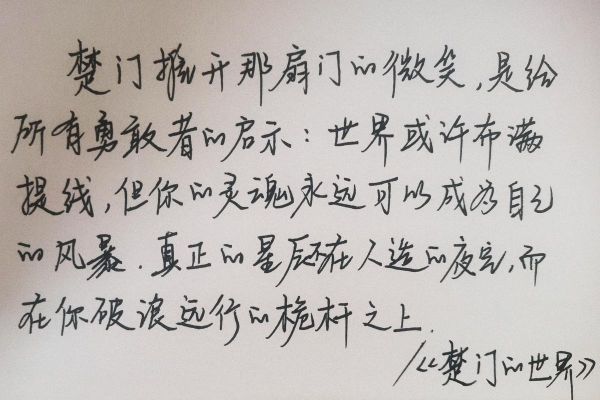 楚门推开那扇门的微笑,是给
所有勇敢者的启示:世界或许布满
提线,但你的灵魂永远可以成为自己
的风暴.真正的星辰不在人造的夜空,而
在你破浪远行的桅杆之上.
/《楚门的世界》